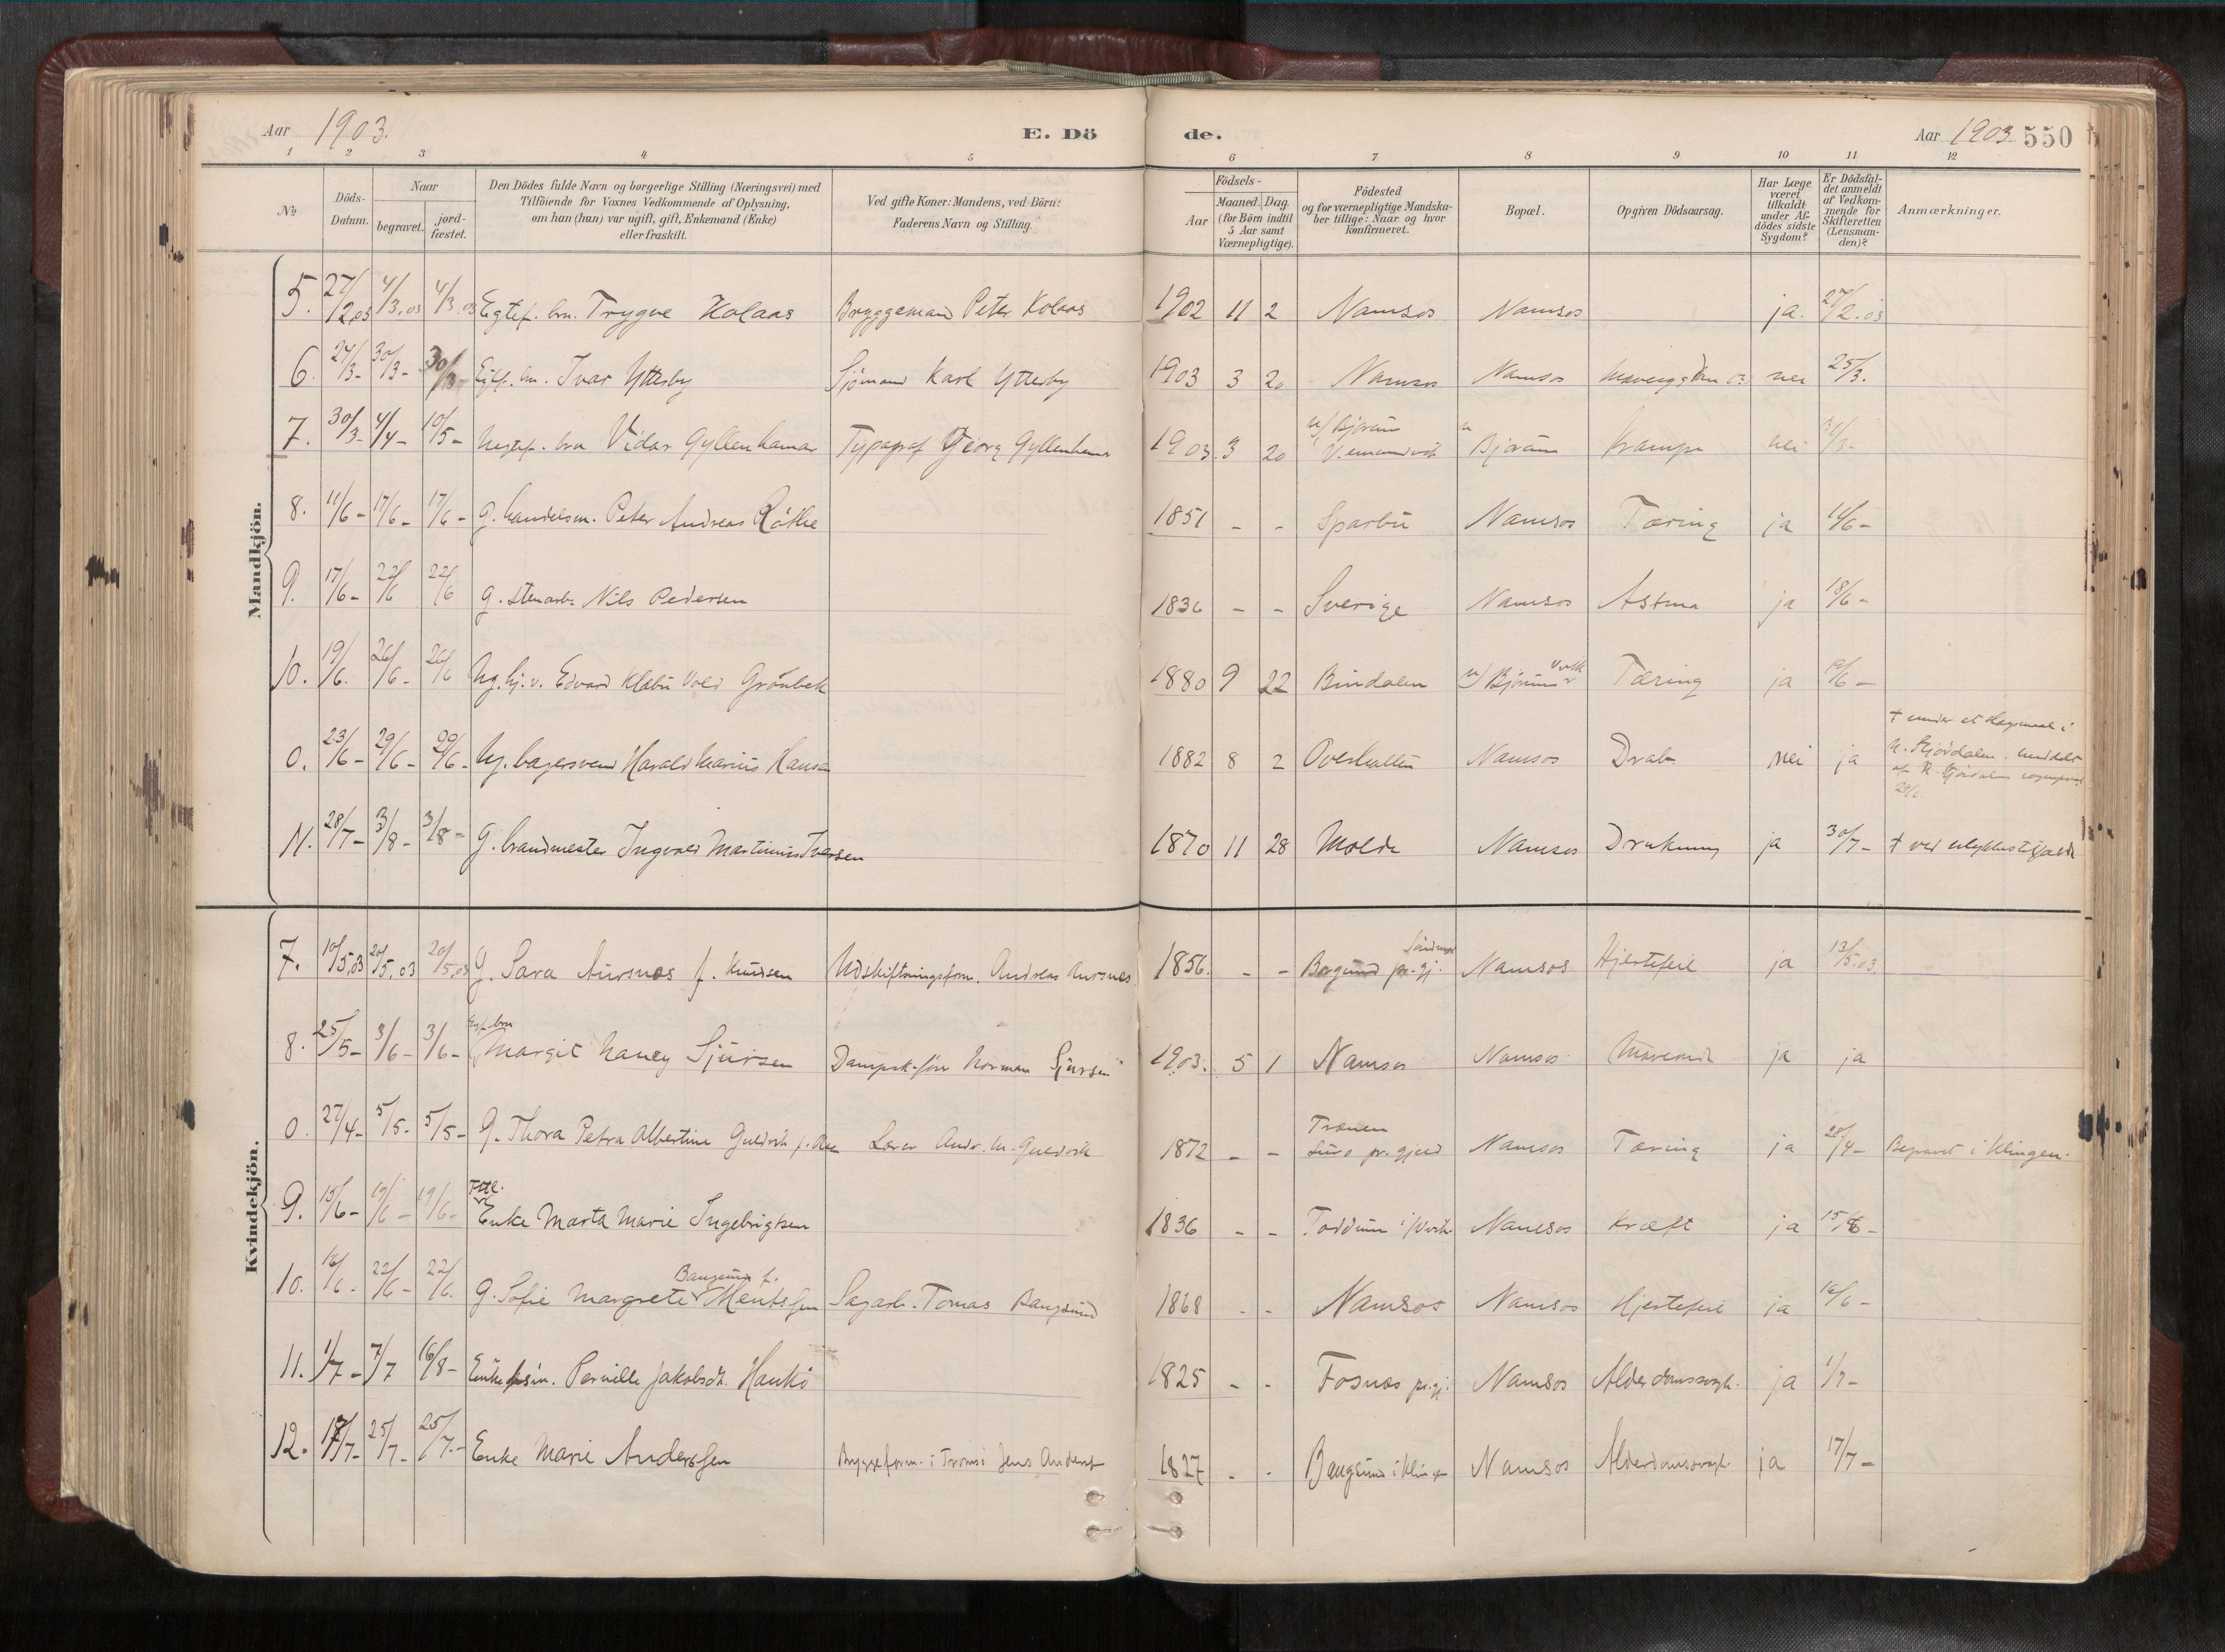 Aar 1903. E. Dö de. Aar 1903. 550
1 2 3 4 5 6 7 8 9 10 11 12
№ Döds-Datum. Naar begravet. jord-fæstet. Den Dödes fulde Navn og borgerlige Stilling (Næringsvei) med Tilföiende for Voxnes Vedkommende af Oplysning, om han (hun) var ugift, gift, Enkemand (Enke) eller fraskilt. Ved gifte Koner: Mandens, ved Börn: Faderens Navn og Stilling. Födsels- Aar Maaned. Dag. (for Börn indtil 5 Aar samt Værnepligtige). Födested og for værnepligtige Mandskaber tillige: Naar og hvor konfirmeret. Bopæl. Opgiven Dödsaarsag. Har Læge været tilkaldt under Afdödes sidste Sygdom? Er Dödsfaldet anmeldt af Vedkommende for Skifteretten (Lensmanden)? Anmærkninger.
Mandkjön.
5. 27/2.03 4/3.03 4/3.03 Egtef. brn. Trygve Kolaas Bryggemand Peter Kolaas 1902 11 2 Namsos Namsos ja. 27/2.03
6. 24/3- 30/3- 30/3- Egtf. brn. Ivar Ytterby Sjömand Karl Ytterby 1903 3 20 Namsos Namsos nei 25/3.
7. 30/3- 4/4- 10/5- Uegtef. brn Vidar Gyllenhamar Typograf Georg Gyllenhamar 1903. 3 20 Bjørum krampe nei 31/3-
8. 11/6- 17/6- 17/6- G. handelsm. Peter Andreas Röthe 1851 - - Sparbu Namsos Tæring ja 11/6-
9. 17/6- 22/6 22/6 G. stenarb. Nils Pedersen 1836 - - Sverige Namsos Astma ja 18/6-
10. 19/6. 26/6- 26/6 Ug. Edvard Klabu Vold Grönbek 1880 9 22 Bindalen Tæring ja 19/6-
0. 23/6- 29/6- 29/6- Ug. bagersvend Harald Marius Hansen 1882 8 2 Overhallen Namsos Drab. nei ja † under et slagsmaal i
N. Stjördalen. meddelt
af N. Stjördalen
29/6.
11. 28/7- 3/8- 3/8- G. brandmester Ingvald Martinius Iversen 1870 11 28 Molde Namsos Drukning ja 30/7- † ved ulykkestilfælde
Kvindekjön.
7. 10/5.03 20/5.03 20/5.03 G. Sara Aursnes f. Knudsen Udskiftningsform. Andreas Aursnes 1856. - - Borgund pr.gj. Söndmør Namsos Hjertefeil ja 13/5.03.
8. 25/5- 3/6- 3/6- Egtf. brn Margit Nancy Sjursen Dampsk.för. Norman Sjursen 1903. 5 1 Namsos Namsos ja ja
0. 27/4- 5/5- 5/5- G. Thora Petra Albertine Guldvik Lærer Andr. M. Guldvik 1872 - - Trænen
Lurø pr.gjeld Namsos Tæring ja 28/4- Begravet i Klingen.
9. 15/6- 19/6- 19/6- Fttl.
Enke Marta Marie Ingebrigtsen 1836 - - Namsos Kræft ja 15/6-
10. 16/6- 22/6- 22/6. G. Sofie Margrete Bangsund f. Mentssen Sagarb. Tomas Bangsund 1868 - - Namsos Namsos Hjertefeil ja 16/6-
11. 1/7- 7/7 16/8- Enke Pernille Jakobsdt. Haukö 1825 - - Fosnæs pr.gj. Namsos Alderdomssvagh. ja 1/7-
12. 17/7- 25/7- 25/7.- Enke Marie Anderssen Bryggeform. i Tromsö Jens Anders 1827 - - Bangsund i Klingen Namsos Alderdomssvagh. ja 17/7-